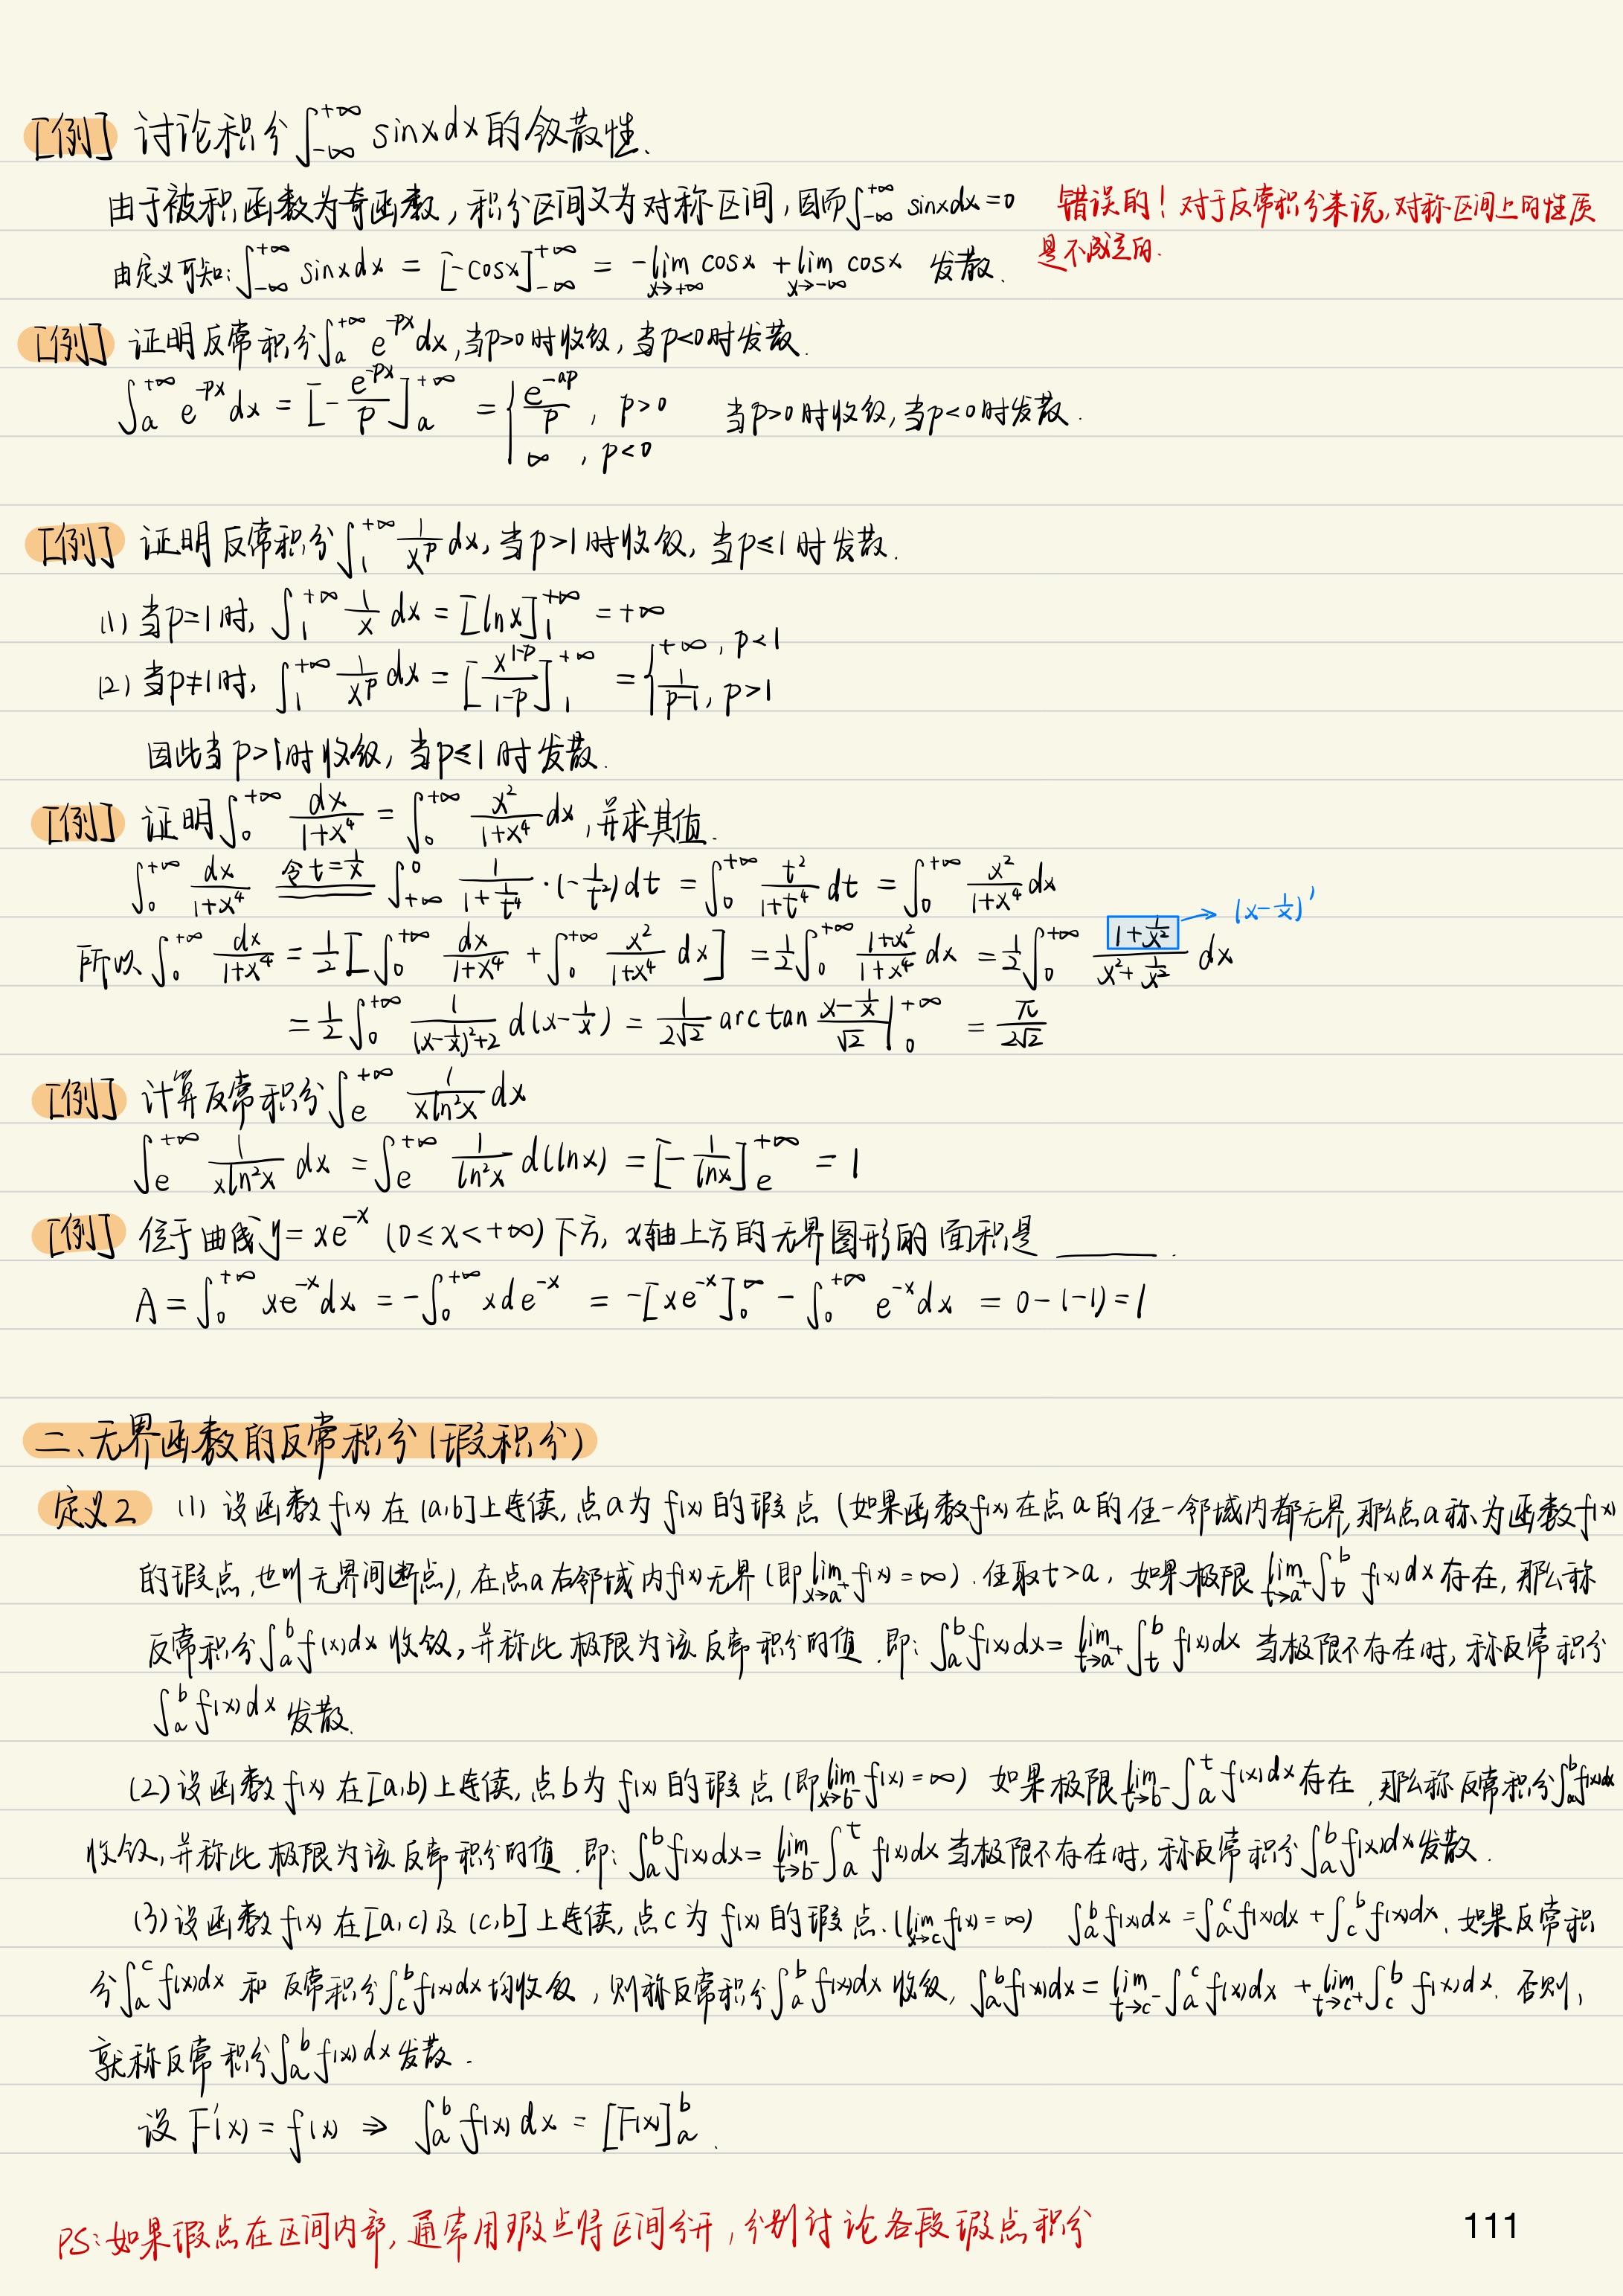 [例] 讨论积分∫_{-∞}^{+∞} sinxdx的敛散性.
由于被积函数为奇函数, 积分区间又为对称区间, 因而∫_{-∞}^{+∞} sinxdx=0 错误的! 对于反常积分来说, 对称区间上的性质
是不成立的.
由定义可知: ∫_{-∞}^{+∞} sinxdx = [-cosx]_{-∞}^{+∞} = -lim_{x→+∞} cosx + lim_{x→-∞} cosx 发散.
[例] 证明反常积分∫_a^{+∞} e^{-px}dx, 当p>0时收敛, 当p<0时发散.
∫_a^{+∞} e^{-px}dx = [-e^{-px}/p]_a^{+∞} = { e^{-ap}/p , p>0 ; ∞ , p<0 当p>0时收敛, 当p<0时发散.
[例] 证明反常积分∫_1^{+∞} 1/x^p dx, 当p>1时收敛, 当p≤1时发散.
(1) 当p=1时, ∫_1^{+∞} 1/x dx = [lnx]_1^{+∞} = +∞
(2) 当p≠1时, ∫_1^{+∞} 1/x^p dx = [x^{1-p}/(1-p)]_1^{+∞} = { +∞, p<1 ; 1/(p-1), p>1
因此当p>1时收敛, 当p≤1时发散.
[例] 证明∫_0^{+∞} dx/(1+x^4) = ∫_0^{+∞} x²/(1+x^4) dx, 并求其值.
∫_0^{+∞} dx/(1+x^4) 令t=1/x ∫_{+∞}^0 1/(1+1/t^4)·(-1/t²)dt = ∫_0^{+∞} t²/(1+t^4) dt = ∫_0^{+∞} x²/(1+x^4) dx
所以∫_0^{+∞} dx/(1+x^4) = 1/2[∫_0^{+∞} dx/(1+x^4) + ∫_0^{+∞} x²/(1+x^4) dx] = 1/2∫_0^{+∞} (1+x²)/(1+x^4) dx = 1/2∫_0^{+∞} (1+1/x²)/(x²+1/x²) dx → (x-1/x)'
= 1/2∫_0^{+∞} 1/((x-1/x)²+2) d(x-1/x) = 1/(2√2) arctan (x-1/x)/√2 |_0^{+∞} = π/(2√2)
[例] 计算反常积分∫_e^{+∞} 1/(xln²x) dx
∫_e^{+∞} 1/(xln²x) dx = ∫_e^{+∞} 1/ln²x d(lnx) = [-1/lnx]_e^{+∞} = 1
[例] 位于曲线y=xe^{-x} (0≤x<+∞)下方, x轴上方的无界图形的面积是______.
A=∫_0^{+∞} xe^{-x}dx = -∫_0^{+∞} xde^{-x} = -[xe^{-x}]_0^∞ - ∫_0^{+∞} e^{-x}dx = 0-(-1)=1
二、无界函数的反常积分(瑕积分)
定义2 (1) 设函数f(x)在(a,b]上连续, 点a为f(x)的瑕点 (如果函数f(x)在点a的任一邻域内都无界, 那么点a称为函数f(x)
的瑕点, 也叫无界间断点), 在点a右邻域内f(x)无界 (即lim_{x→a⁺} f(x)=∞). 任取t>a, 如果极限lim_{t→a⁺}∫_t^b f(x)dx存在, 那么称
反常积分∫_a^b f(x)dx收敛, 并称此极限为该反常积分的值. 即: ∫_a^b f(x)dx=lim_{t→a⁺}∫_t^b f(x)dx 当极限不存在时, 称反常积分
∫_a^b f(x)dx发散.
(2) 设函数f(x)在[a,b)上连续, 点b为f(x)的瑕点(即lim_{x→b⁻} f(x)=∞) 如果极限lim_{t→b⁻}∫_a^t f(x)dx存在, 那么称反常积分∫_a^b f(x)dx
收敛, 并称此极限为该反常积分的值. 即: ∫_a^b f(x)dx=lim_{t→b⁻}∫_a^t f(x)dx 当极限不存在时, 称反常积分∫_a^b f(x)dx发散.
(3) 设函数f(x)在[a,c)及(c,b]上连续, 点c为f(x)的瑕点. (lim_{x→c} f(x)=∞) ∫_a^b f(x)dx=∫_a^c f(x)dx+∫_c^b f(x)dx. 如果反常积
分∫_a^c f(x)dx 和 反常积分∫_c^b f(x)dx均收敛, 则称反常积分∫_a^b f(x)dx收敛, ∫_a^b f(x)dx=lim_{t→c⁻}∫_a^c f(x)dx+lim_{t→c⁺}∫_c^b f(x)dx. 否则,
就称反常积分∫_a^b f(x)dx发散.
设F'(x)=f(x) ⇒ ∫_a^b f(x)dx=[F(x)]_a^b.
PS: 如果瑕点在区间内部, 通常用瑕点将区间分开, 分别讨论各段瑕点积分
111